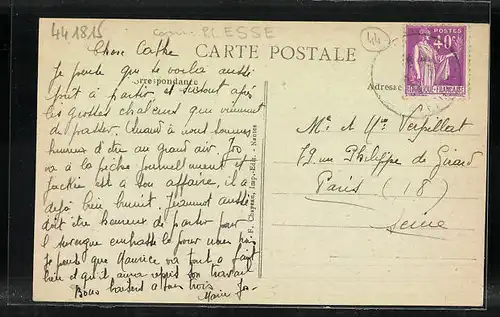 441815 com. PLESSE 44
CARTE POSTALE
Correspondance
Adresse
POSTES
40c
RÉPUBLIQUE FRANÇAISE
F. Chapeau, Imp.-Edit. - Nantes
Je pense que te voilà aussi
prêt à partir et surtout après
les grosses chaleurs que viennent
de passer. Quand à nous sommes
heureux d'être au grand air. Jo
va à la pêche journellement et
Jackie est à son affaire, il a
déjà bien bruni. Jeannot aussi
doit être heureux de partir pour
embrasse le pour nous
Je pense que Maurice va tout à fait
bien et qu'il aura repris son travail
Bons baisers à tous trois.
Marie Jo
Mr et Mme Verpillat
79 rue Philippe de Girard
Paris (18)
Seine